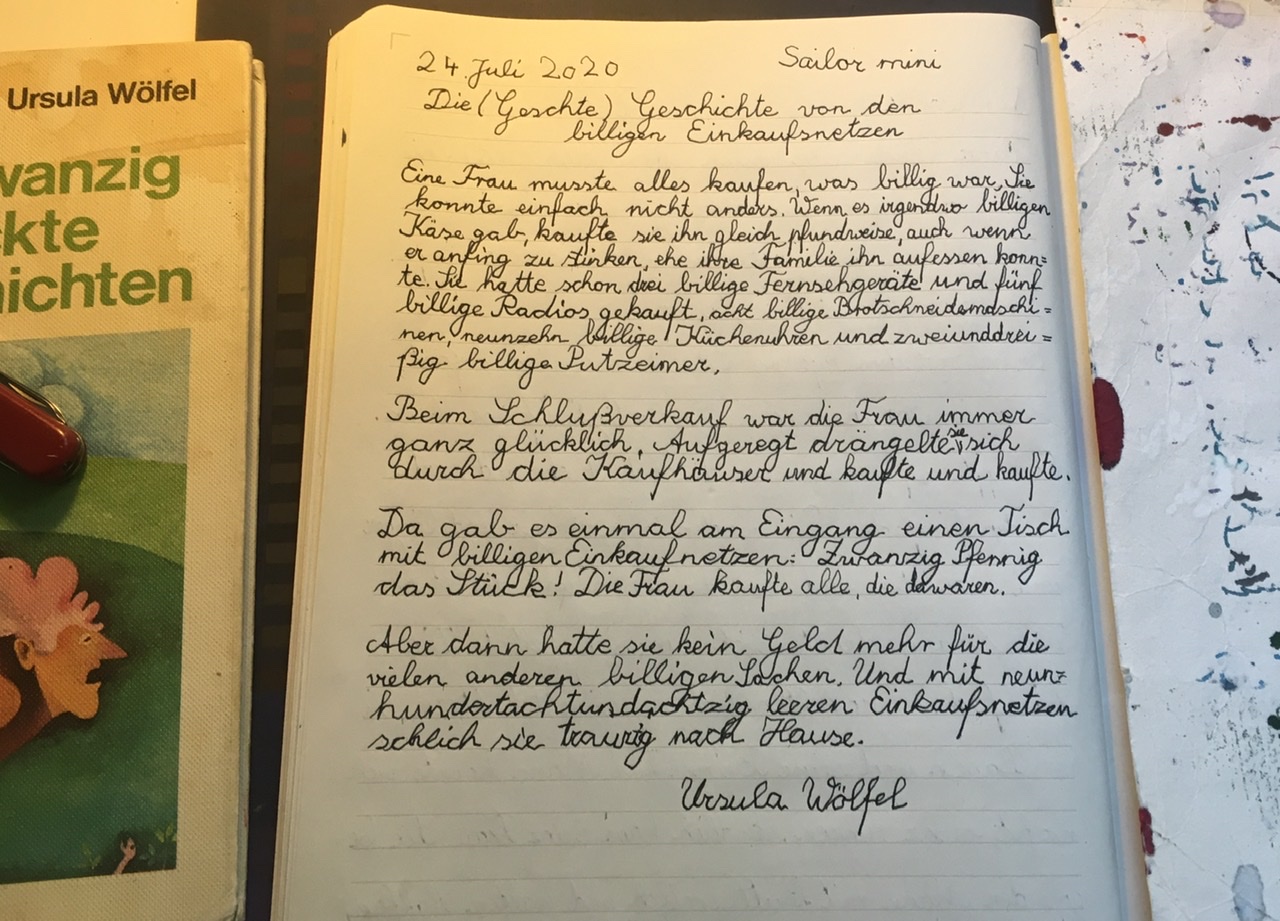 Ursula Wölfel
wanzig
kte
ichten
24 Juli 2020 Sailor mini
Die (Geschte) Geschichte von den
billigen Einkaufsnetzen
Eine Frau musste alles kaufen, was billig war, Sie
konnte einfach nicht anders. Wenn es irgendwo billigen
Käse gab, kaufte sie ihn gleich pfundweise, auch wenn
er anfing zu stinken, ehe ihre Familie ihn aufessen konn=
te. Sie hatte schon drei billige Fernsehgeräte und fünf
billige Radios gekauft, acht billige Brotschneidemaschi=
nen, neunzehn billige Küchenuhren und zweiunddrei=
ßig billige Putzeimer.
Beim Schlußverkauf war die Frau immer
ganz glücklich. Aufgeregt drängelte sie sich
durch die Kaufhäuser und kaufte und kaufte.
Da gab es einmal am Eingang einen Tisch
mit billigen Einkaufnetzen: Zwanzig Pfennig
das Stück! Die Frau kaufte alle, die da waren.
Aber dann hatte sie kein Geld mehr für die
vielen anderen billigen Sachen. Und mit neun=
hundertachtundachtzig leeren Einkaufsnetzen
schlich sie traurig nach Hause.
Ursula Wölfel